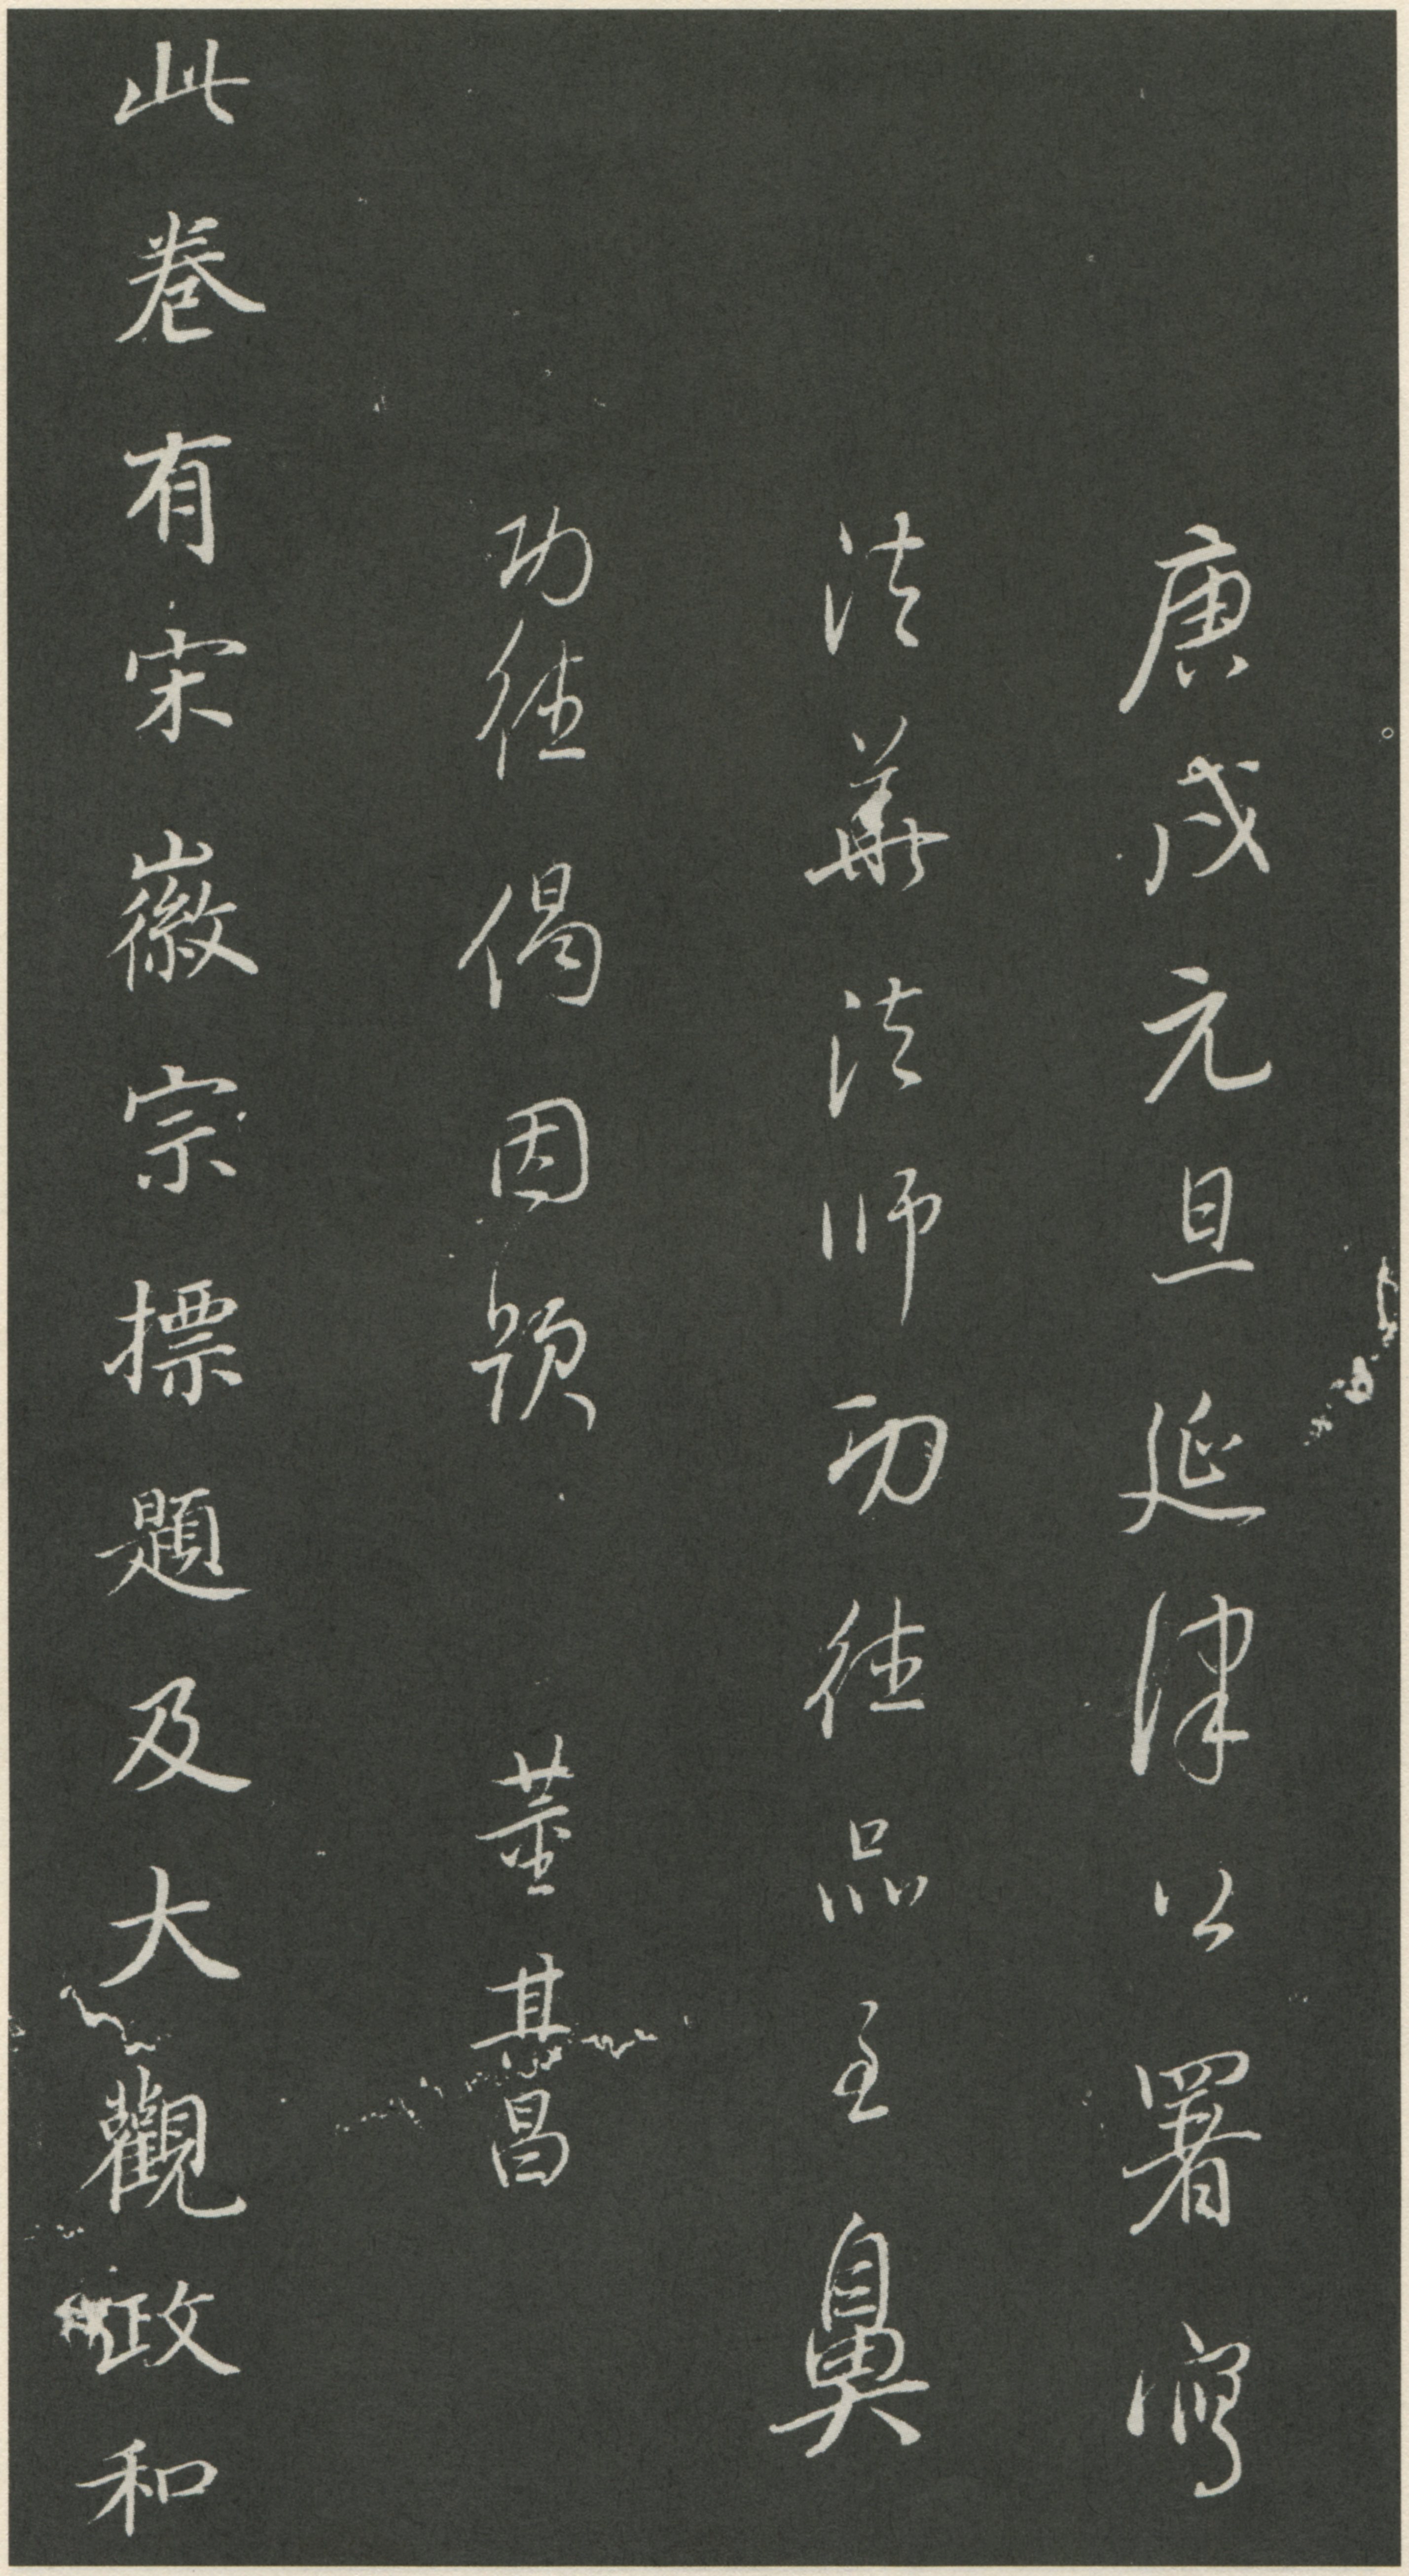 庚戌元旦延津公署寫
法華法師功德品至鼻
功德偈因題　董其昌
此卷有宋徽宗標題及大觀政和